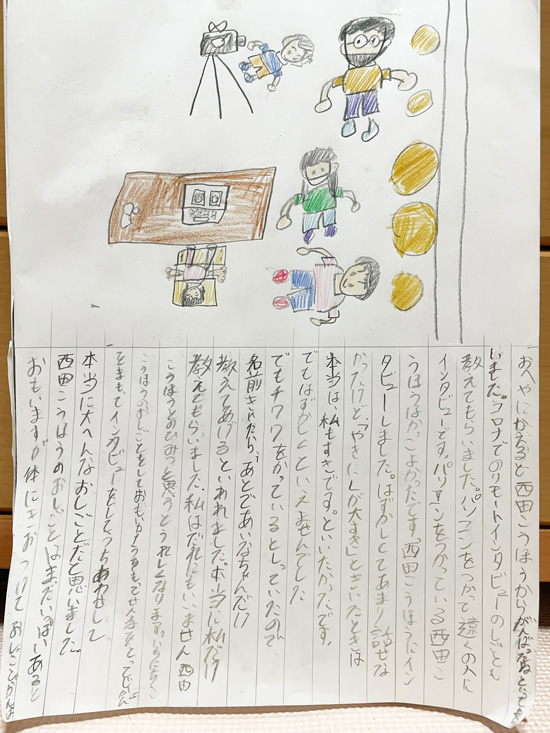 おへやにかえると西田こうほうから
いました。コロナでのリモートインタビューのしごとも
教えてもらいました。パソコンをつかって遠くの人に
インタビューです。パソコンをつかっている西田こ
うほうはかっこよかったです。西田こうほうにイン
タビューしました。はずかしくてあまり話せな
かったけど、「やきにくが大すき」ときいたときは
本当は、私もすきです。といいたかったです。
でもはずかしくていえませんでした
でもチワワをかっているとしっていたので
名前をきいたら、あとであいなちゃんだけ
教えてあげるといわれました。本当に私だけ
教えてもらいました。私はだれにもいいません 西田
こうほうとのひみつと思うとうれしくなります。
こうほうのおしごとをしておもい
をまもてインタビューをしてうちあわせして
本当に大へんなおしごとだと思いました。
西田こうほうのおしごとはまだいっぱいあると
おもいますが体にきおつけておしごと